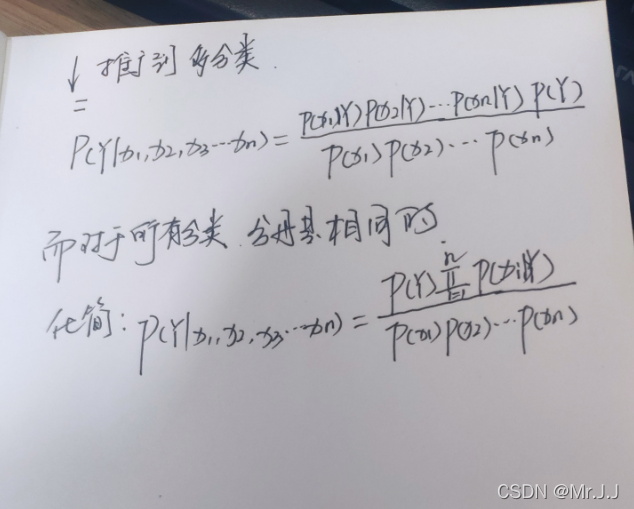 ↓ 推广到多分类.
=
P(Y|x1,x2,x3⋯xn) = P(x1|Y)P(x2|Y)⋯P(xn|Y)P(Y) / P(x1)P(x2)⋯P(xn)
而对于所有分类.分母其相同时
化简: P(Y|x1,x2,x3⋯xn) = P(Y)∏ⁿᵢ₌₁P(xi|Y) / P(x1)P(x2)⋯P(xn)
CSDN @Mr.J.J